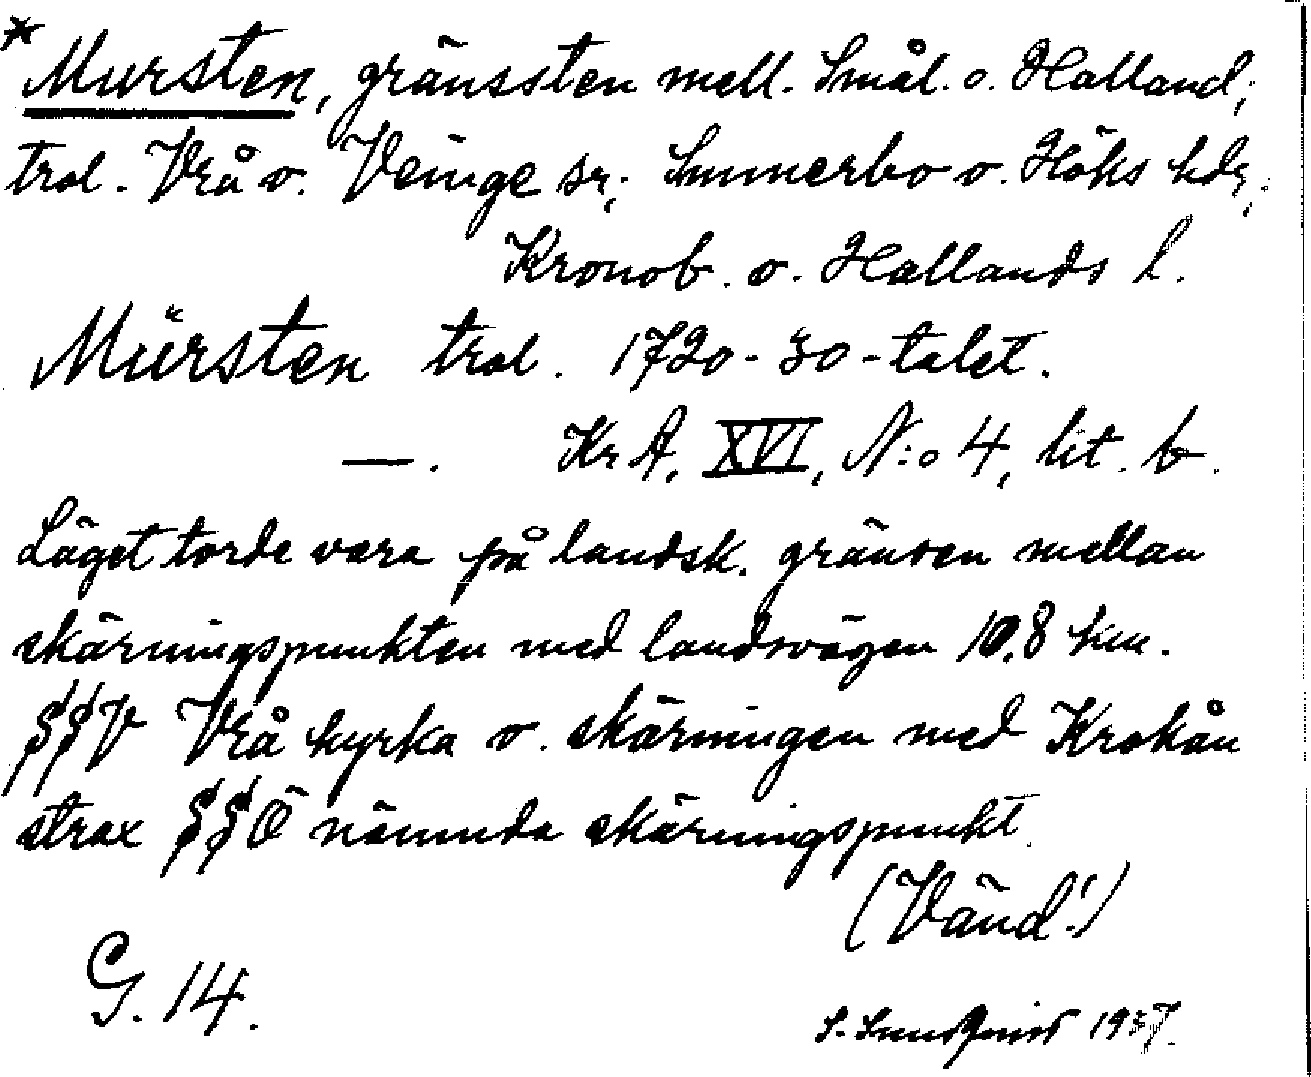 *Mursten, gränssten mell. Smål. o. Halland;
trol. Vrå o. Veinge sr; Sunnerbo o. Höks hdr;
Kronob. o. Hallands l.
Mŭrsten trol. 1720-30-talet.
—. KrA, XVI, N:o 4, lit. b.
Läget torde vara på landsk. gränsen mellan
skärningspunkten med landsvägen 10.8 km.
SSV Vrå kyrka o. skärningen med Krokån
strax SSÖ nämnda skärningspunkt.
(Vänd!)
G. 14.
S. Sundquist 1937.